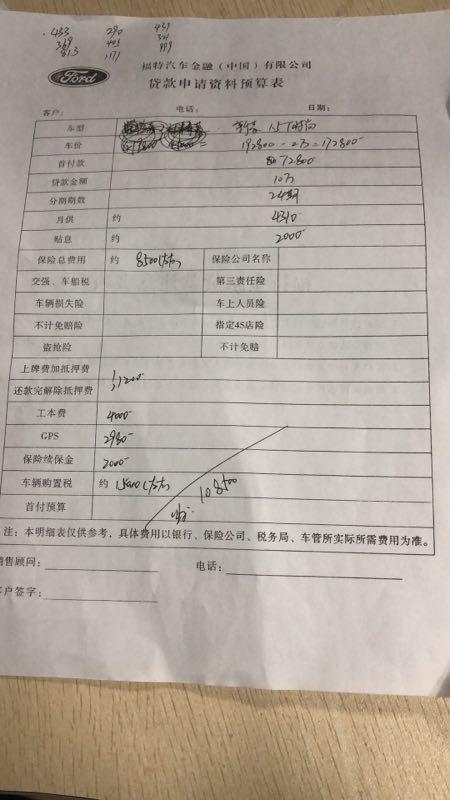 .433 290 439
369 443
813 1171 999
福特汽车金融（中国）有限公司
Ford
贷款申请资料预算表
客户： 电话： 日期：
车型 1.5T时尚
车价 192800-2万=172800
首付款 72800
贷款金额 10万
分期期数 24期
月供 约 4310
贴息 约 2000
保险总费用 约 8500(左右) 保险公司名称
交强、车船税 第三责任险
车辆损失险 车上人员险
不计免赔险 指定4S店险
盗抢险 不计免赔
上牌费加抵押费
1200
还款完解除抵押费
工本费 4000
GPS 2980
保险续保金 2000
车辆购置税 约 15000(左右)
首付预算 108500
注：本明细表仅供参考，具体费用以银行、保险公司、税务局、车管所实际所需费用为准。
销售顾问： 电话：
客户签字：